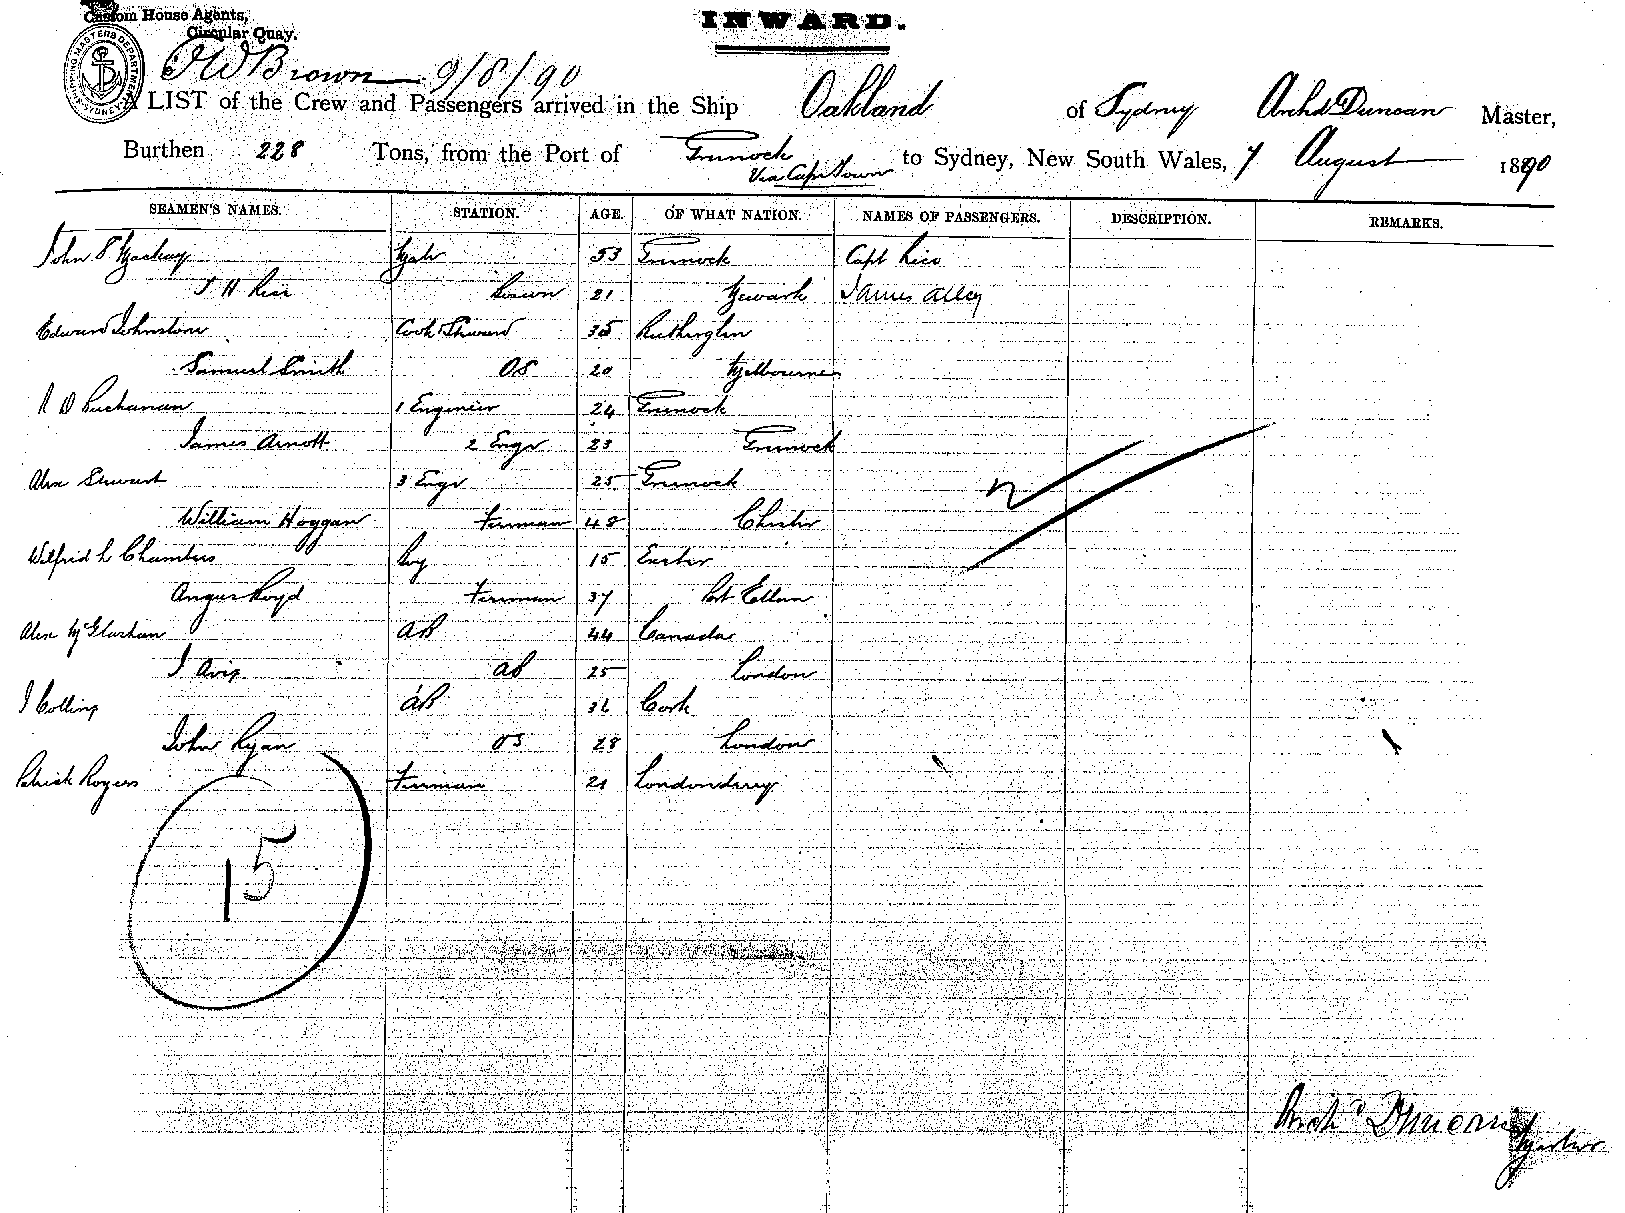 INWARD.
Custom House Agents,
Circular Quay.
SHIPPING MASTERS DEPARTMENT SYDNEY
J W Brown 9/8/90
A LIST of the Crew and Passengers arrived in the Ship Oakland of Sydney Archd Duncan Master,
Burthen 228 Tons, from the Port of Greenock via Cape Town to Sydney, New South Wales, 7 August 1890
SEAMEN'S NAMES. STATION. AGE. OF WHAT NATION. NAMES OF PASSENGERS. DESCRIPTION. REMARKS.
John S Mackay Mate 53 Greenock Capt Rice
J H Rice Bosun 21 Newark James Alley
Edward Johnston Cook Steward 35 Rutherglen
Samuel Smith OS 20 Melbourne
R D Buchanan 1 Engineer 24 Greenock
James Arnott 2 Engr 23 Greenock
Alex Stewart 3 Engr 25 Greenock
William Hoggan Fireman 48 Chester
Wilfred L Chambers Boy 15 Exeter
Angus Boyd Fireman 37 Port Ellen
Alex McGlashan AB 44 Canada
J Avis AB 25 London
J Collins AB 36 Cork
John Ryan OS 28 London
Patrick Rogers Fireman 21 Londonderry
15
Archd Duncan
Master